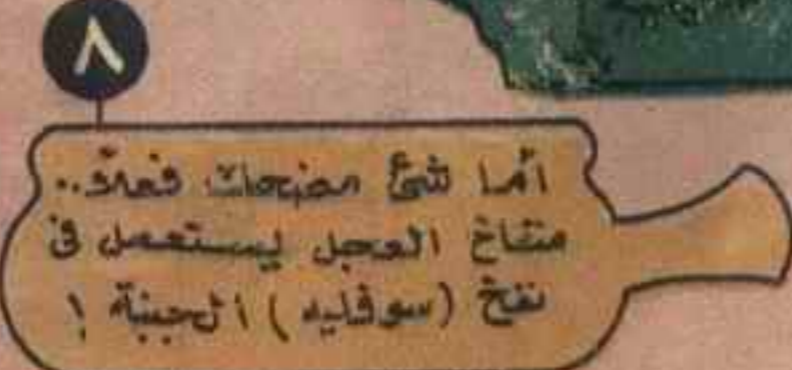 ٨
أما شئ مضحك فعلاً..
منفاخ العجل يستعمل فى
نفخ (سوفليه) الجبنة !